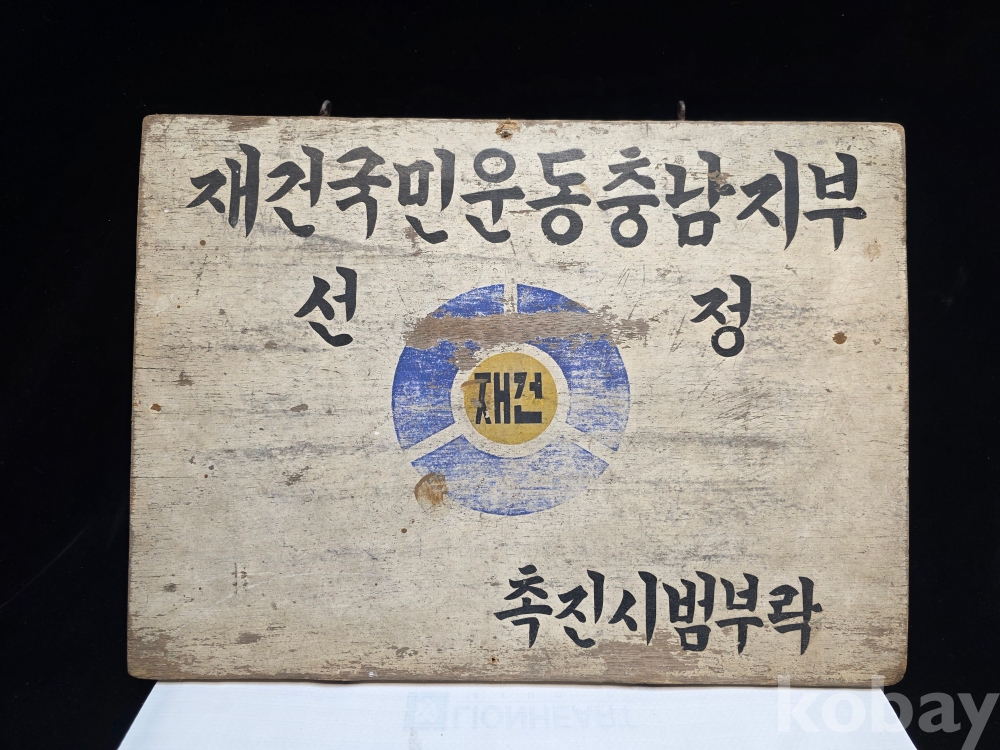 재건국민운동충남지부
선 정
재건
촉진시범부락
LIONHEART
kobay